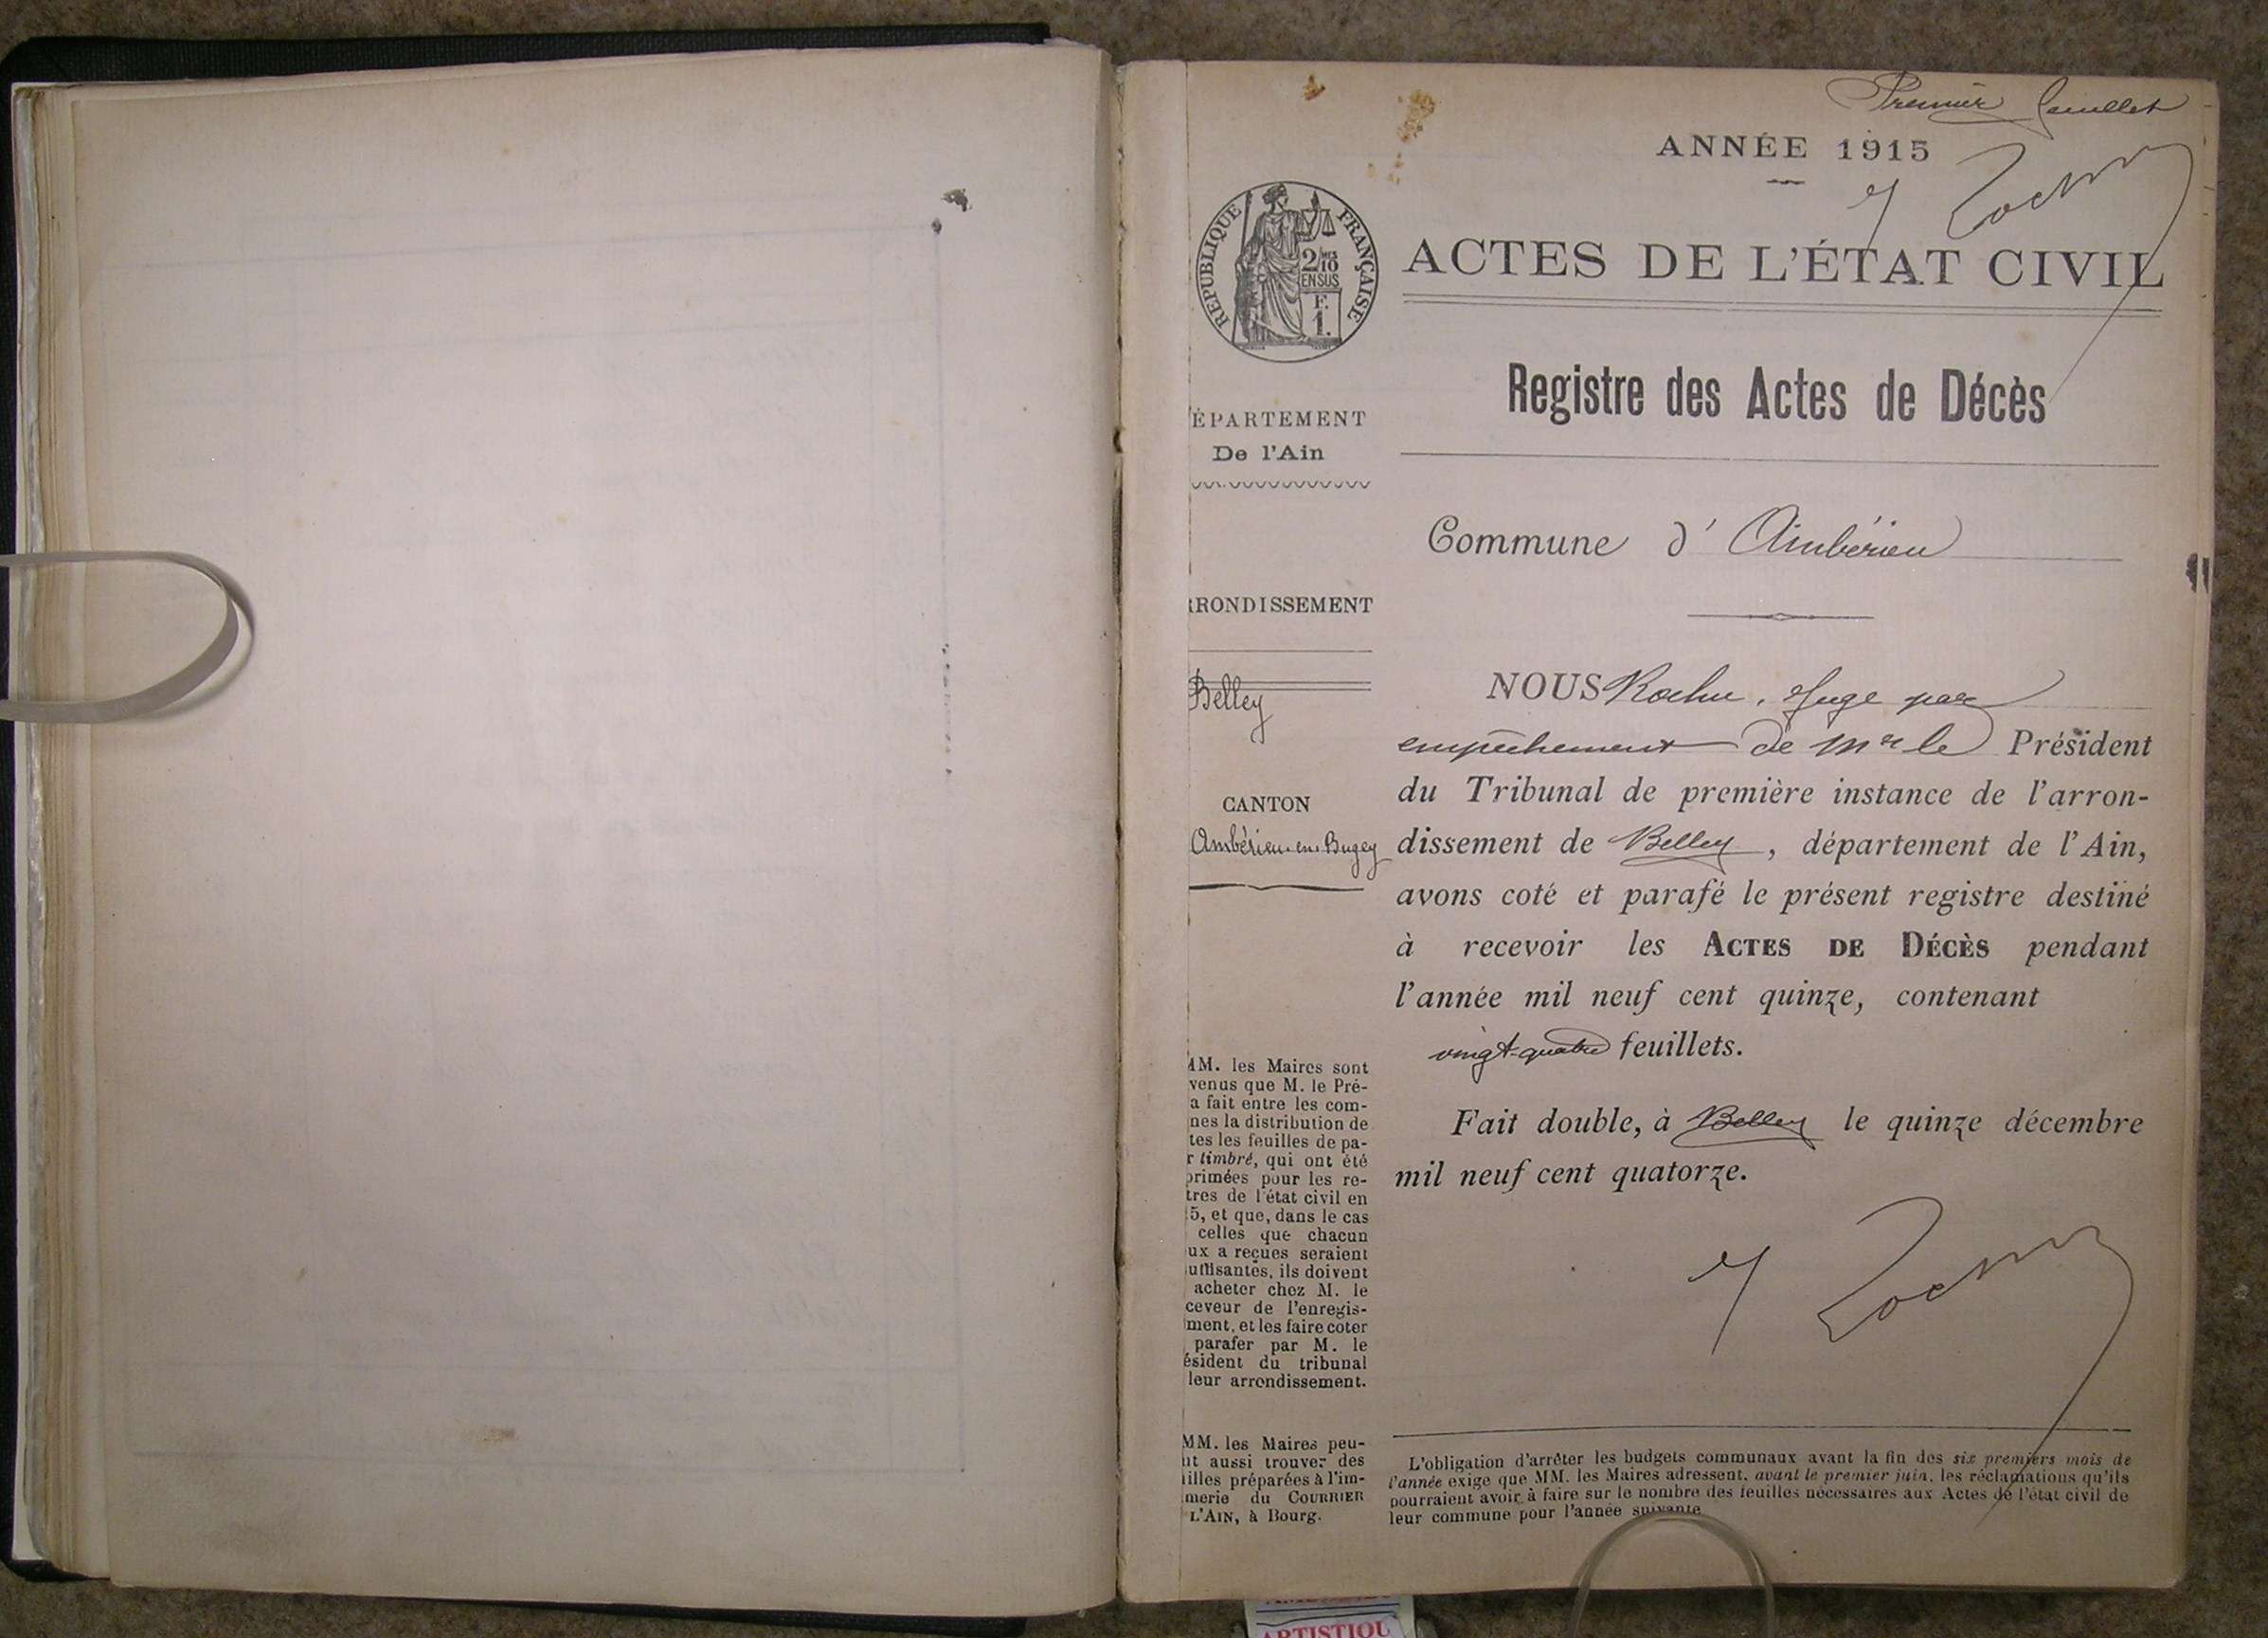 Premier feuillet
ANNÉE 1915
ACTES DE L'ÉTAT CIVIL
RÉPUBLIQUE FRANÇAISE
2/10
EN SUS
F.
1.
Registre des Actes de Décès
ÉPARTEMENT
De l'Ain
Commune d'Ambérieu
RRONDISSEMENT
Belley
CANTON
Ambérieu en Bugey
NOUS Rochu, Juge par
empêchement de Mr le Président
du Tribunal de première instance de l'arron-
dissement de Belley, département de l'Ain,
avons coté et parafé le présent registre destiné
à recevoir les ACTES DE DÉCÈS pendant
l'année mil neuf cent quinze, contenant
vingt-quatre feuillets.
Fait double, à Belley le quinze décembre
mil neuf cent quatorze.
MM. les Maires sont
venus que M. le Pré-
a fait entre les com-
nes la distribution de
tes les feuilles de pa-
r timbré, qui ont été
primées pour les re-
tres de l'état civil en
5, et que, dans le cas
celles que chacun
ux a reçues seraient
uffisantes, ils doivent
acheter chez M. le
ceveur de l'enregis-
ment, et les faire coter
parafer par M. le
ésident du tribunal
leur arrondissement.
MM. les Maires peu-
nt aussi trouver des
illes préparées à l'im-
merie du COURRIER
L'AIN, à Bourg.
L'obligation d'arrêter les budgets communaux avant la fin des six premiers mois de
l'année exige que MM. les Maires adressent, avant le premier juin, les réclamations qu'ils
pourraient avoir à faire sur le nombre des feuilles nécessaires aux Actes de l'état civil de
leur commune pour l'année suivante
ARTISTIQU